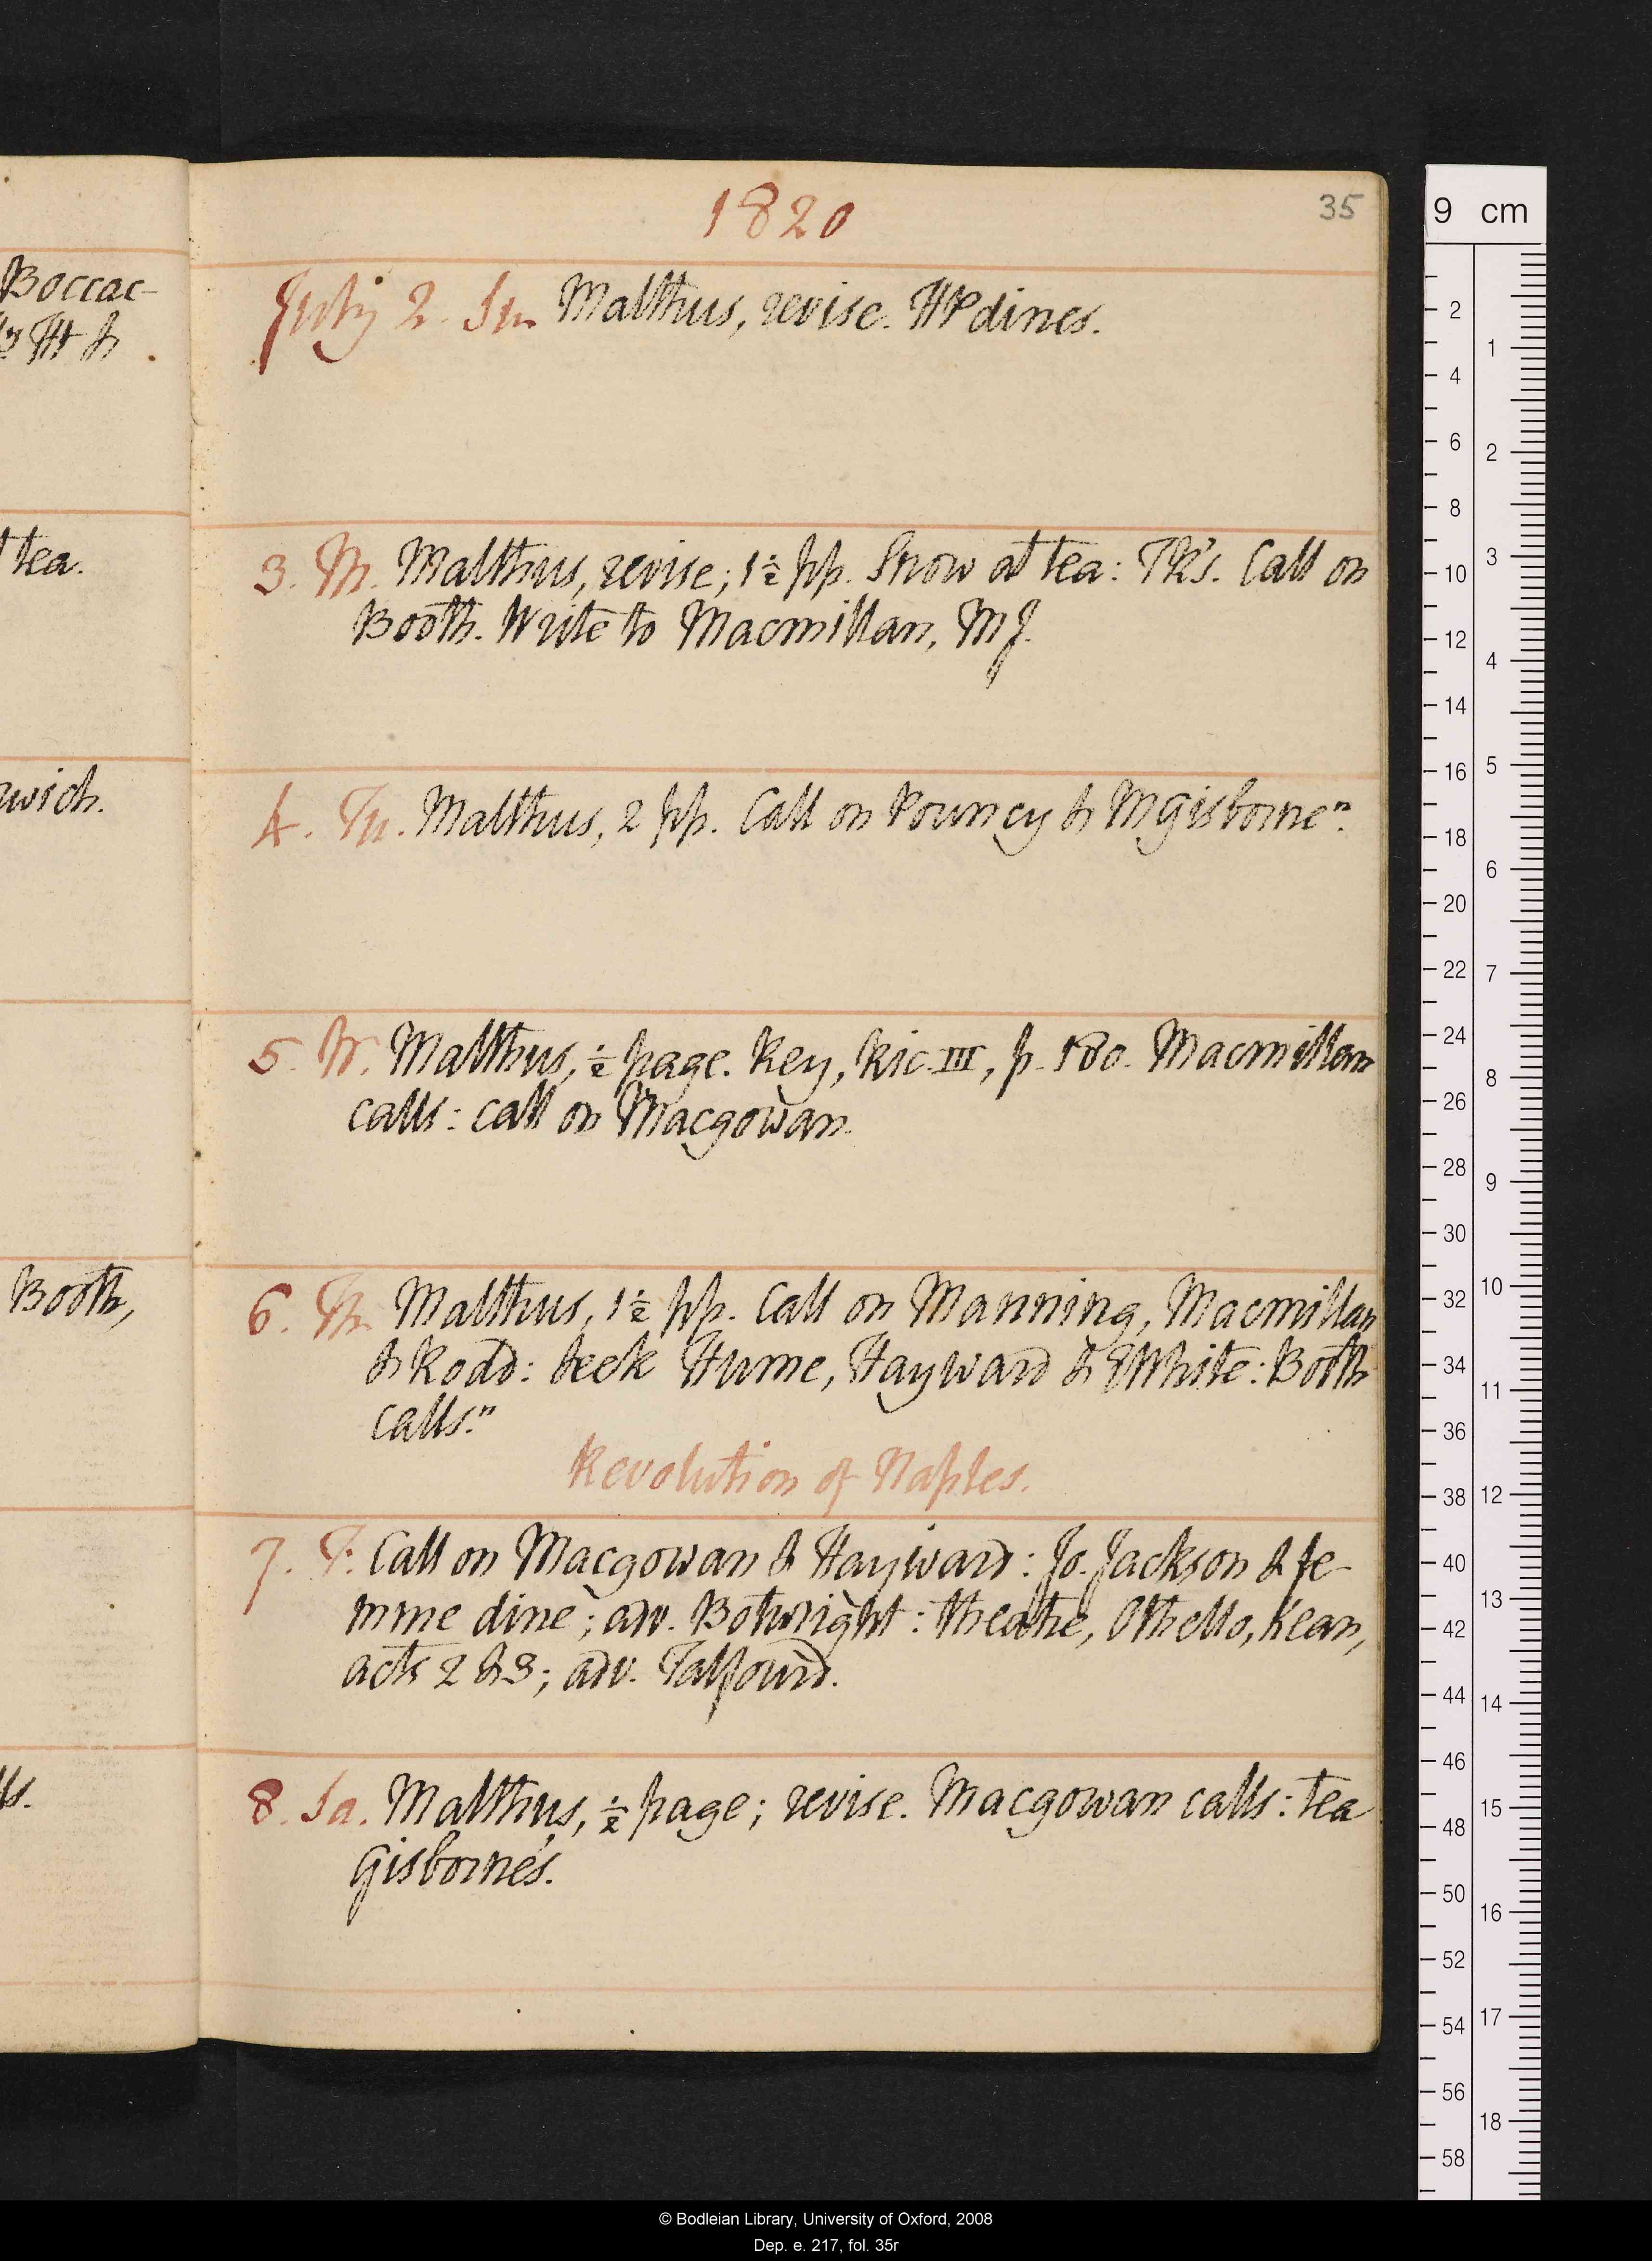 1820
35
Boccac-
H &
July 2. Su. Malthus, revise. HR dines.
t tea.
3. M. Malthus, revise; 1½ pp. Snow at tea: TR's. Call on
Booth. Write to Macmillan, MJ.
wich.
4. Tu. Malthus, 2 pp. Call on Pouncy & MGisborne".
5. W. Malthus, ½ page. Key, Ric. III, p. 180. Macmillan
calls: call on Macgowan.
Booth,
6. Th. Malthus, 1½ pp. Call on Manning, Macmillan
& Rodd: seek Hume, Hayward & EWhite: Booth
calls."
Revolution of Naples.
7. F. Call on Macgowan & Hayward: Jo. Jackson & fe-
mme dine; adv. Botwright: theatre, Othello, Kean,
acts 2 & 3; adv. Talfourd.
lls.
8. Sa. Malthus, ½ page; revise. Macgowan calls: tea
Gisborne's.
9 cm
2 4 6 8 10 12 14 16 18 20 22 24 26 28 30 32 34 36 38 40 42 44 46 48 50 52 54 56 58
1 2 3 4 5 6 7 8 9 10 11 12 13 14 15 16 17 18
© Bodleian Library, University of Oxford, 2008
Dep. e. 217, fol. 35r